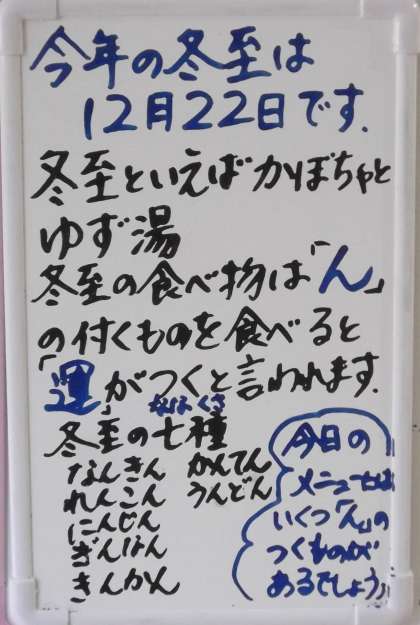 今年の冬至は
12月22日です.
冬至といえばかぼちゃと
ゆず湯
冬至の食べ物は「ん」
の付くものを食べると
「運」がつくと言われます.
冬至の七種
ななくさ
なんきん かんてん
れんこん うんどん
にんじん
ぎんなん
きんかん
今日の
メニューには
いくつ「ん」の
つくものが
あるでしょう